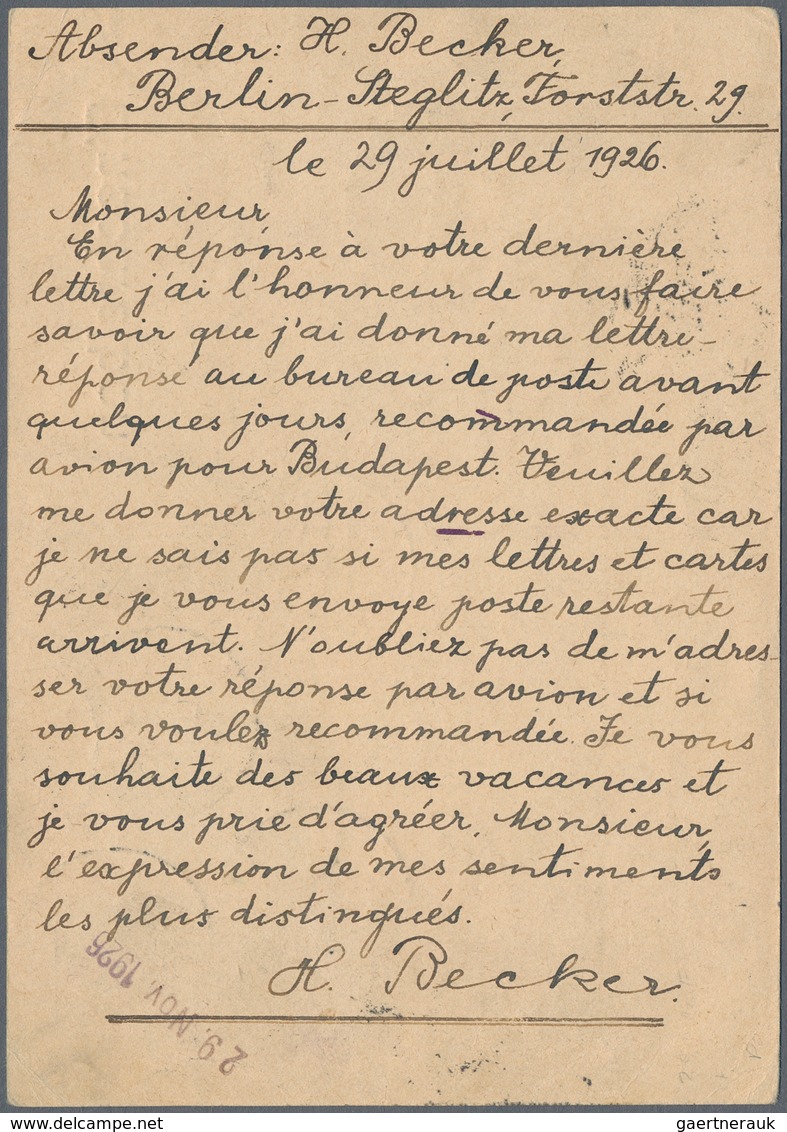 Absender: H. Becker,
Berlin-Steglitz, Forststr. 29.
le 29 juillet 1926.
Monsieur,
En réponse à votre dernière
lettre j'ai l'honneur de vous faire
savoir que j'ai donné ma lettre-
réponse au bureau de poste avant
quelques jours, recommandée par
avion pour Budapest. Veuillez
me donner votre adresse exacte car
je ne sais pas si mes lettres et cartes
que je vous envoye poste restante
arrivent. N'oubliez pas de m'adres-
ser votre réponse par avion et si
vous voulez recommandée. Je vous
souhaite des beaux vacances et
je vous prie d'agréer, Monsieur,
l'expression de mes sentiments
les plus distingués.
H. Becker.
29. NOV. 1926
delcampe.net
gaertnerauk